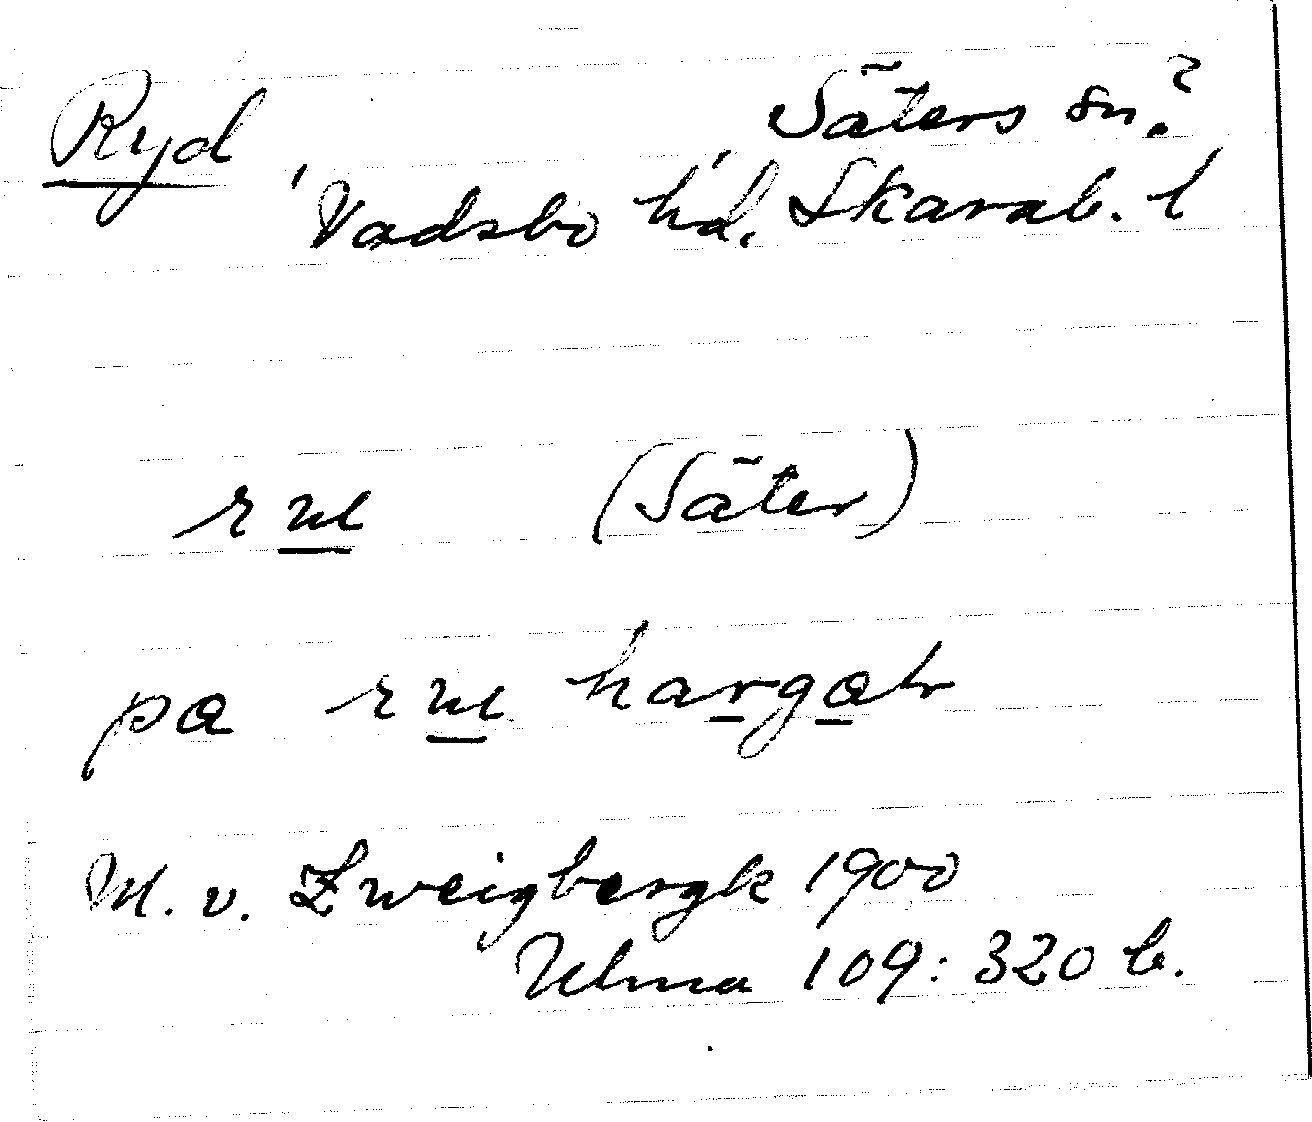 Ryd, Säters sn?,
Vadsbo hd. Skarab. l
(Säter)
M. v. Zweigbergk 1900
Ulma 109: 320 b.